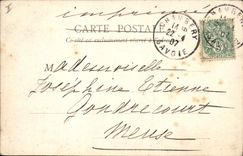 imprimé
CARTE POSTALE
Ce côté est exclusivement réservé à l'adresse
CHAMBERY
22 4
07
SAVOIE
Mademoiselle
Joséphine Etienne
Gondrecourt
Meuse